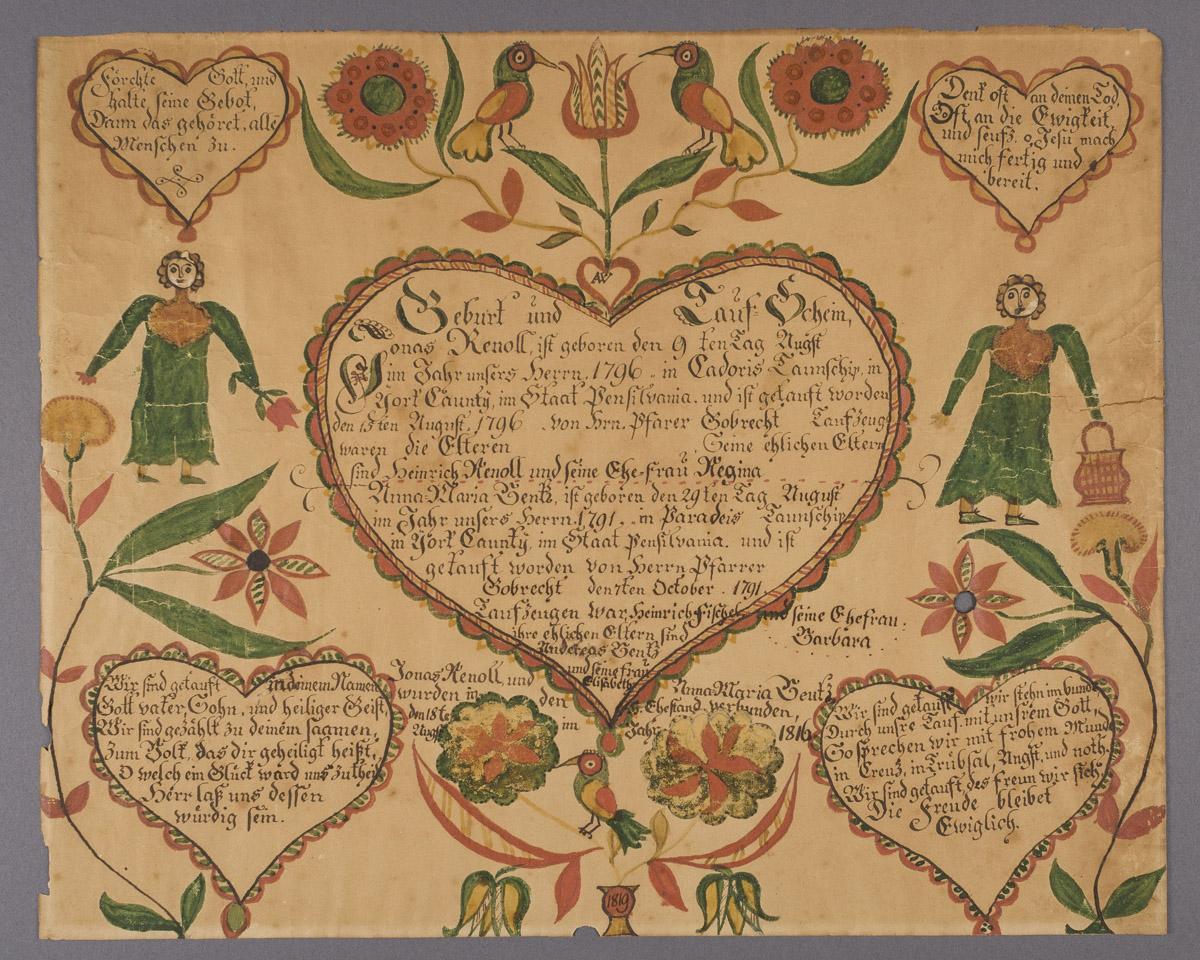 Förchte Gott, und
halte seine Gebot,
Dann das gehöret, alle
Menschen zu.
Denk oft an deinen Tod,
Oft, an die Ewigkeit
und seufz. o Jesu mach
mich fertig und
bereit.
AW
Geburt und Tauf-Schein,
Jonas Renoll, ist geboren den 9 ten Tag Augst
im Jahr unsers Herrn, 1796 in Cadoris Taunschip, in
York Caunty, im Staat Pensilvania. und ist getauft worden
den 15ten August, 1796 von Hrn. Pfärer Gobrecht Taufzeug
waren die Elteren Seine ehlichen Eltern
sind Heinrich Renoll und seine Ehe-frau Regina
Anna-Maria Bentz, ist geboren den 29ten Tag August
im Jahr unsers Herrn. 1791. in Paradeis Taunschip
in York Caunty, im Staat Pensilvania. und ist
getauft worden von Herrn Pfarrer
Gobrecht den 7ten October. 1791.
Taufzeugen war, Heinrich Fischel und seine Ehefrau.
Barbara
ihre ehlichen Eltern sind
Andereas Bentz
und seine frau
Elisabeth
Jonas Renoll, und Anna-Maria Bentz
wurden in den Ehestand verbunden,
den 18te Augst im Jahr 1816
Wir sind getauft in deinem Namen
Gott vater, Sohn, und heiliger Geist
Wir sind gezählt zu deinem saamen,
Zum Volk, das dir geheiligt heißt,
O welch ein Glück ward uns zutheil
Herr laß uns dessen
würdig sein.
Wir sind getauft, wir stehn im bunde
Durch unsre Tauf, mit unsrem Gott,
So sprechen wir mit frohem Munde
in Creuz, in Trübsal, Angst, und noth.
Wir sind getauft, des freun wir sich,
Die Freude bleibet
Ewiglich.
1819